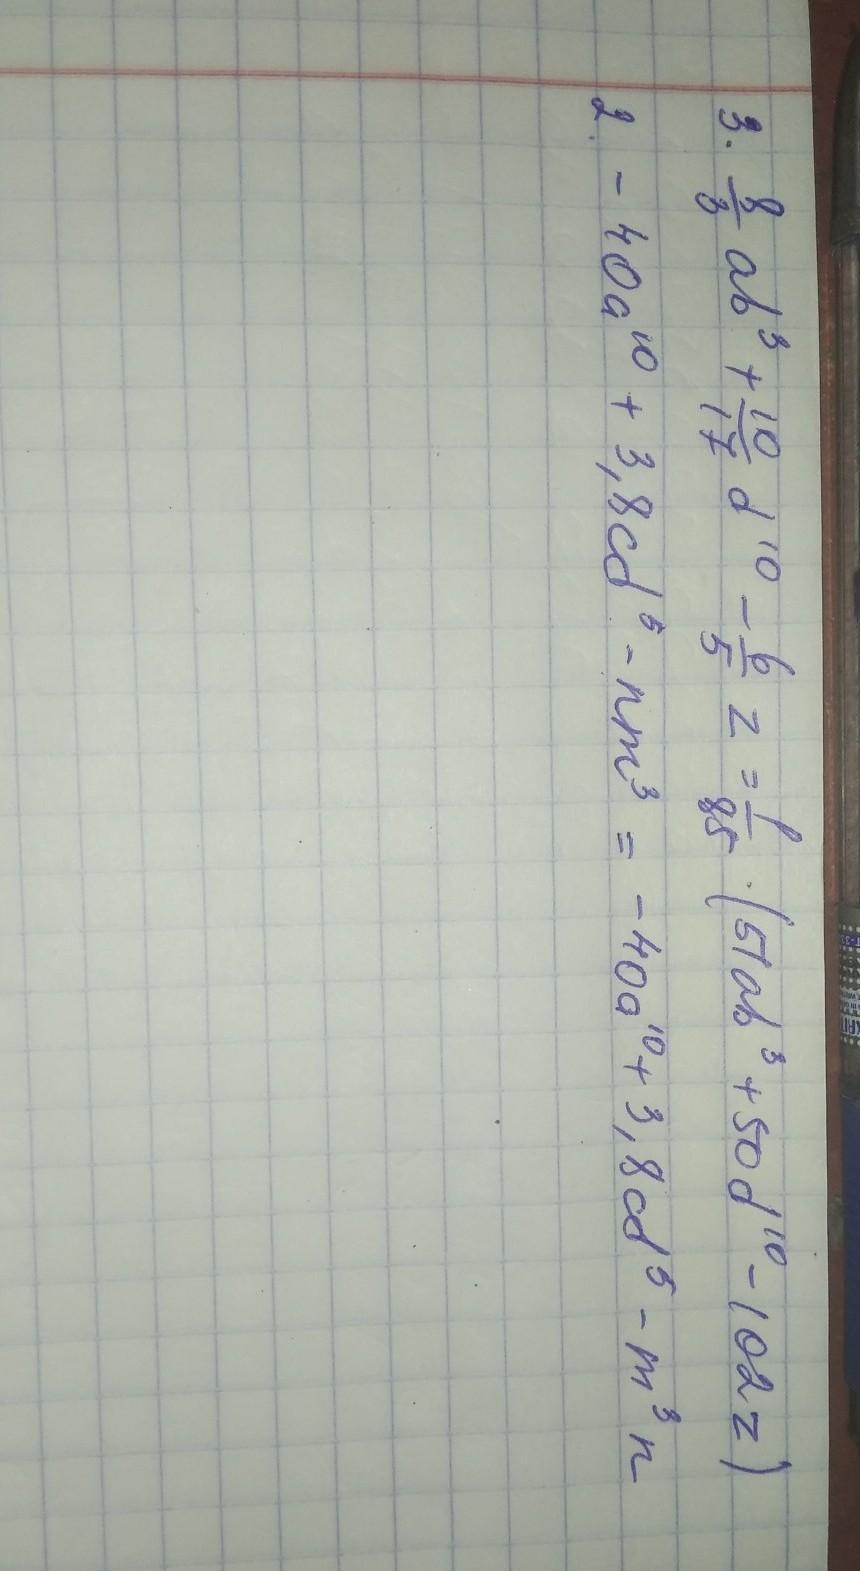 3. 8/3 ab³ + 10/17 d¹⁰ - 6/5 z = 1/85 · (51ab³ + 50d¹⁰ - 102z)
2. - 40a¹⁰ + 3,8cd⁵ - nm³ = - 40a¹⁰ + 3,8cd⁵ - m³n